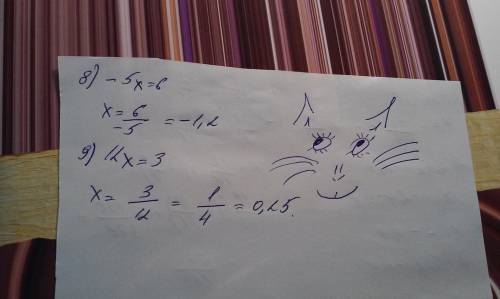 8) -5x=6
x=6/-5 =-1,2
9) 12x=3
x= 3/12 = 1/4 = 0,25.